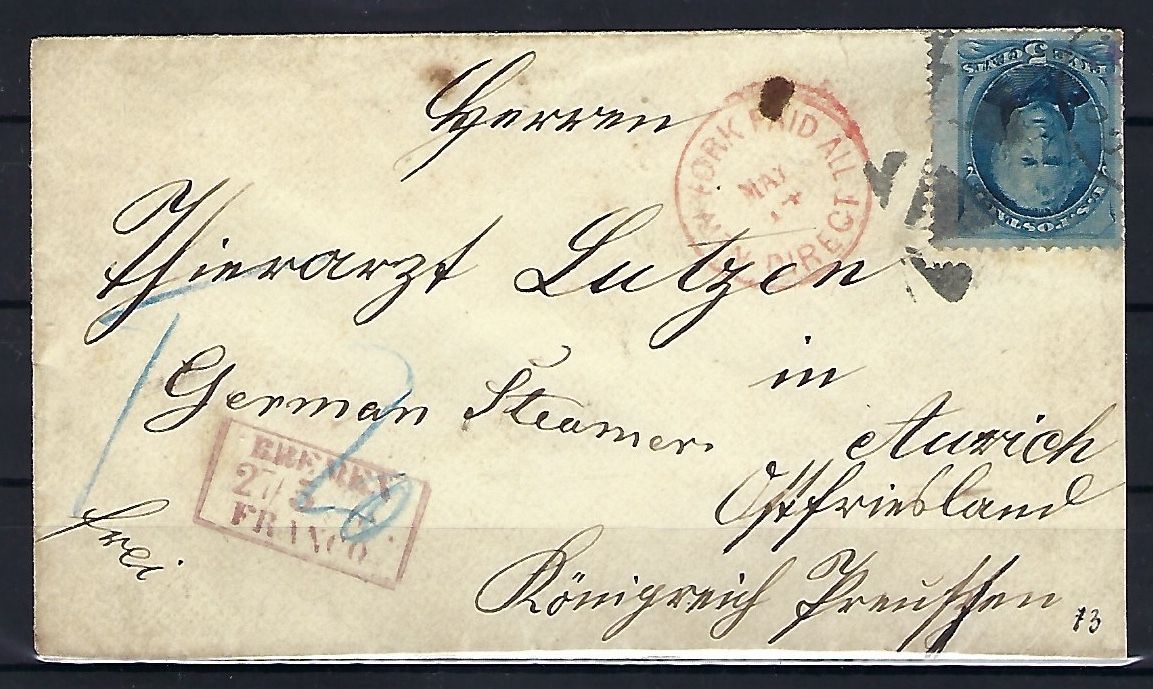 Herren
Thierarzt Lutzen
in
German Steamer.
Aurich
Ostfriesland
frei
Königreich Preussen
13
NEW YORK PAID ALL
MAY
DIRECT
BREMEN
27/5
FRANCO.
U.S. POSTAGE
FIVE 5 CENTS